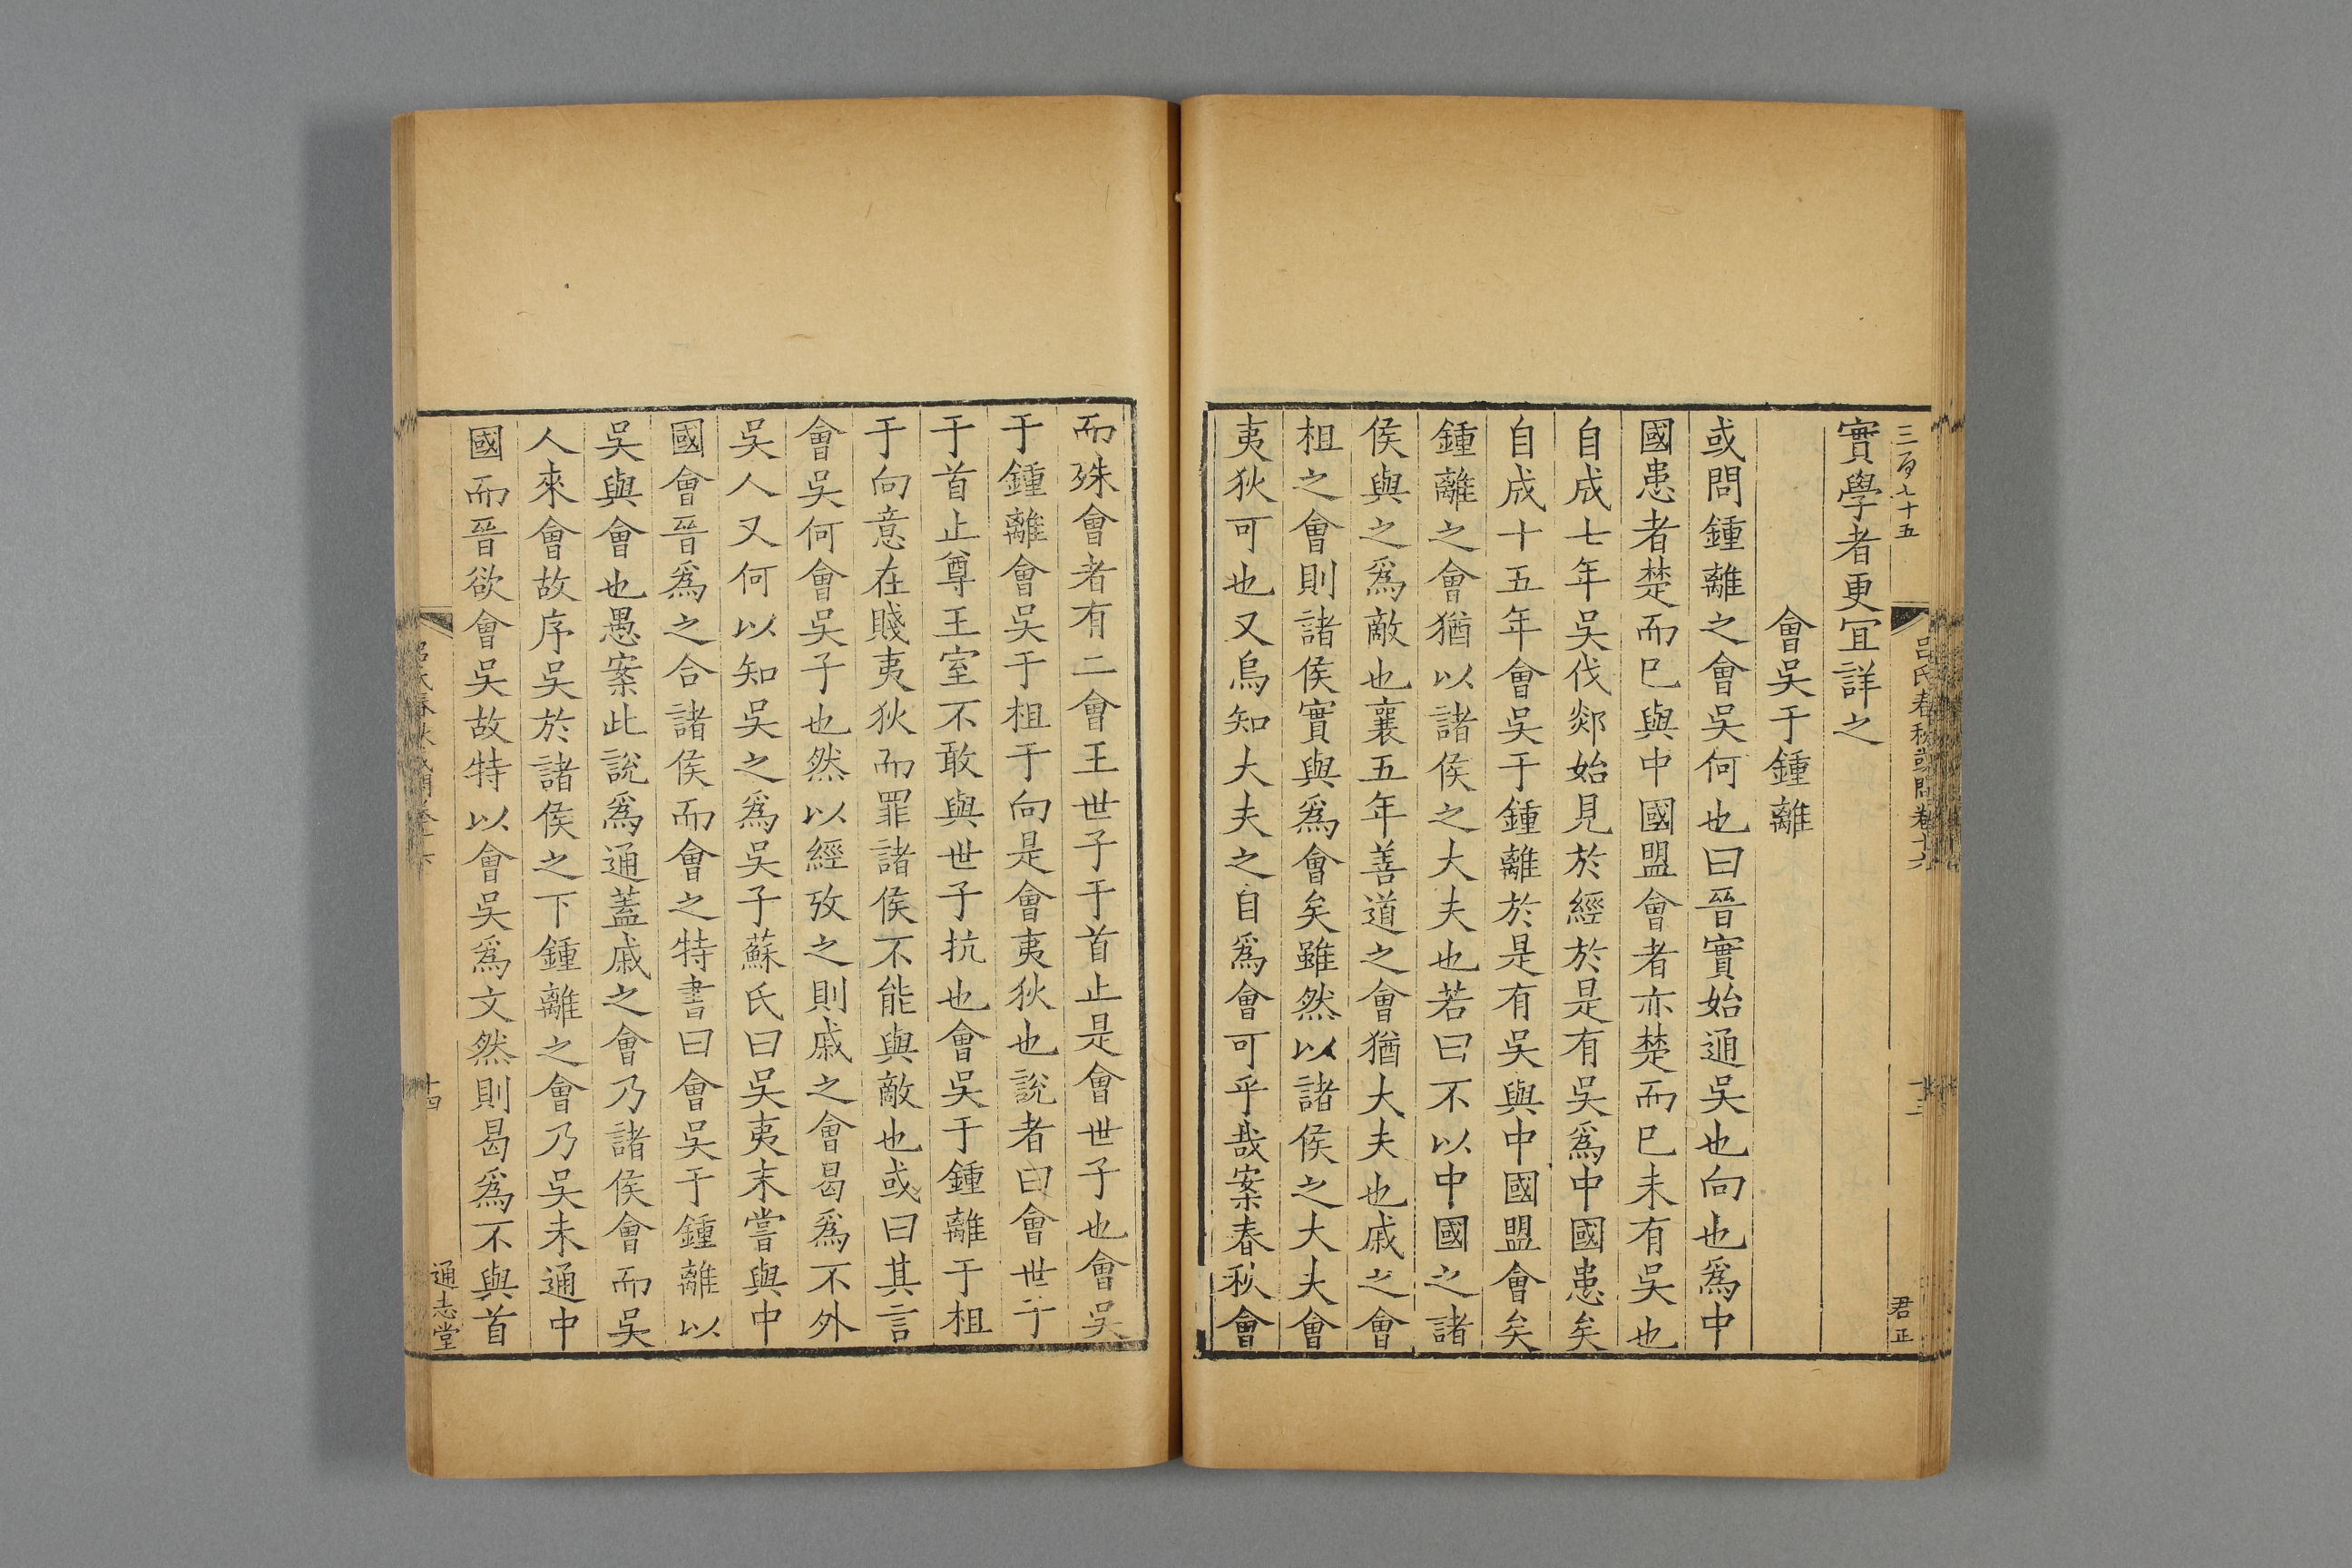 三百七十五
呂氏春秋或問卷十六
君正
實學者更宜詳之
會吳于鍾離
或問鍾離之會吳何也曰晉實始通吳也向也爲中
國患者楚而巳與中國盟會者亦楚而巳未有吳也
自成七年吳伐郯始見於經於是有吳爲中國患矣
自成十五年會吳于鍾離於是有吳與中國盟會矣
鍾離之會猶以諸侯之大夫也若曰不以中國之諸
侯與之爲敵也襄五年善道之會猶大夫也戚之會
柤之會則諸侯實與爲會矣雖然以諸侯之大夫會
夷狄可也又烏知大夫之自爲會可乎哉案春秋會
而殊會者有二會王世子于首止是會世子也會吳
于鍾離會吳于柤于向是會夷狄也說者曰會世子
于首止尊王室不敢與世子抗也會吳于鍾離于柤
于向意在賤夷狄而罪諸侯不能與敵也或曰其言
會吳何會吳子也然以經攷之則戚之會曷爲不外
吳人又何以知吳之爲吳子蘇氏曰吳夷末嘗與中
國會晉爲之合諸侯而會之特書曰會吳于鍾離以
吳與會也愚案此說爲通蓋戚之會乃諸侯會而吳
人來會故序吳於諸侯之下鍾離之會乃吳未通中
國而晉欲會吳故特以會吳爲文然則曷爲不與首
十四
通志堂